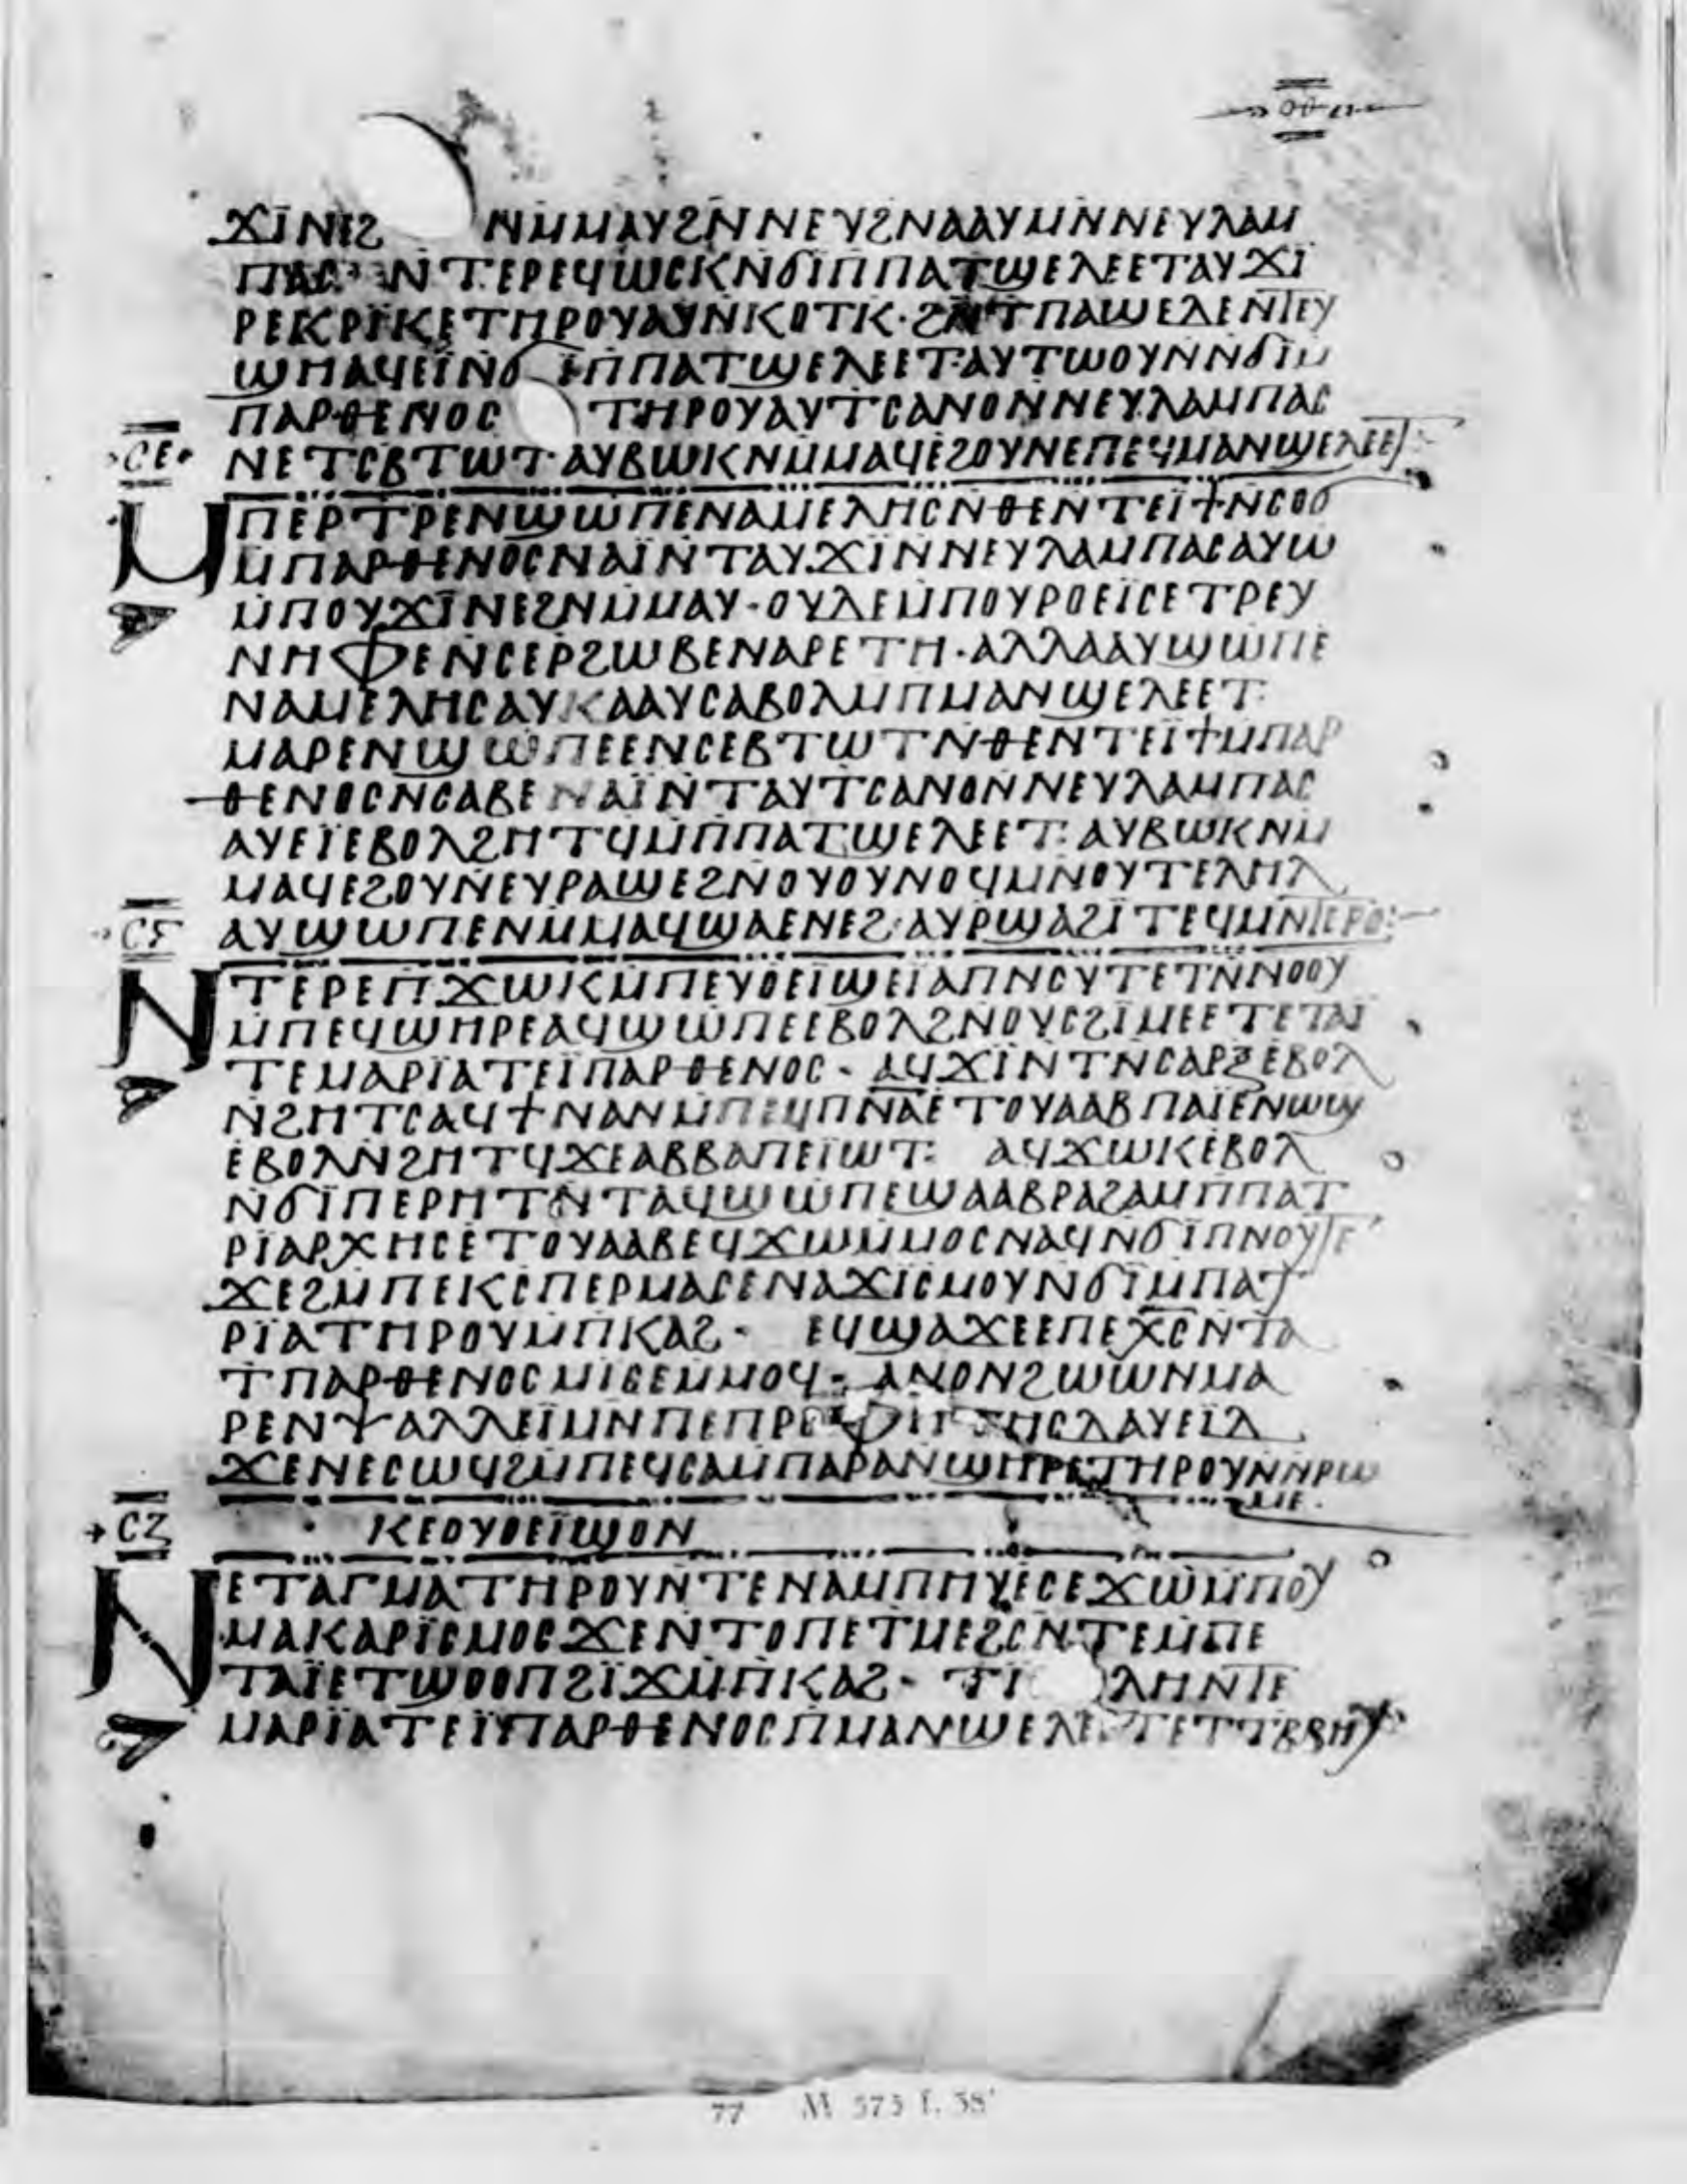 ⲟⲑ
ϫⲓⲛⲉϩ ⲛⲙⲙⲁⲩϩⲛⲛⲉⲩϩⲛⲁⲁⲩⲙⲛⲛⲉⲩⲗⲁⲙ
ⲡⲁⲥ ⲛⲧⲉⲣⲉϥⲱⲥⲕⲛϭⲓⲡⲡⲁⲧϣⲉⲗⲉⲉⲧⲁⲩϫⲓ
ⲣⲉⲕⲣⲓⲕⲉⲧⲏⲣⲟⲩⲁⲩⲛⲕⲟⲧⲕ· ϩⲛⲧⲡⲁϣⲉⲇⲉⲛⲧⲉⲩ
ϣⲏⲁϥⲉⲓⲛϭⲓⲡⲡⲁⲧϣⲉⲗⲉⲉⲧ·ⲁⲩⲧⲱⲟⲩⲛⲛϭⲓⲙ
ⲡⲁⲣⲑⲉⲛⲟⲥ ⲧⲏⲣⲟⲩⲁⲩⲧⲥⲁⲛⲟⲛⲛⲉⲩⲗⲁⲙⲡⲁⲥ
ⲥⲉ ⲛⲉⲧⲥⲃⲧⲱⲧ·ⲁⲩⲃⲱⲕⲛⲙⲙⲁϥⲉϩⲟⲩⲛⲉⲡⲉϥⲙⲁⲛϣⲉⲗⲉⲉⲧ
ⲙⲡⲉⲣⲧⲣⲉⲛϣⲱⲡⲉⲛⲁⲙⲉⲗⲏⲥⲛⲑⲉⲛⲧⲉⲓϯⲛⲥⲟϭ
ⲙⲡⲁⲣⲑⲉⲛⲟⲥⲛⲁⲓⲛⲧⲁⲩϫⲓⲛⲛⲉⲩⲗⲁⲙⲡⲁⲥⲁⲩⲱ
ⲙⲡⲟⲩϫⲓⲛⲉϩⲛⲙⲙⲁⲩ·ⲟⲩⲇⲉⲙⲡⲟⲩⲣⲟⲉⲓⲥⲉⲧⲣⲉⲩ
ⲛⲏⲫⲉⲛⲥⲉⲣϩⲱⲃⲉⲛⲁⲣⲉⲧⲏ·ⲁⲗⲗⲁⲁⲩϣⲱⲡⲉ
ⲛⲁⲙⲉⲗⲏⲥⲁⲩⲕⲁⲁⲩⲥⲁⲃⲟⲗⲙⲡⲙⲁⲛϣⲉⲗⲉⲉⲧ·
ⲙⲁⲣⲉⲛϣⲱⲡⲉⲉⲛⲥⲉⲃⲧⲱⲧⲛⲑⲉⲛⲧⲉⲓϯⲙⲡⲁⲣ
ⲑⲉⲛⲟⲥⲛⲥⲁⲃⲉⲛⲁⲓⲛⲧⲁⲩⲧⲥⲁⲛⲟⲛⲛⲉⲩⲗⲁⲙⲡⲁⲥ
ⲁⲩⲉⲓⲉⲃⲟⲗϩⲏⲧϥⲙⲡⲡⲁⲧϣⲉⲗⲉⲉⲧ· ⲁⲩⲃⲱⲕⲛⲙ
ⲙⲁϥⲉϩⲟⲩⲛⲉⲩⲣⲁϣⲉϩⲛⲟⲩⲟⲩⲛⲟϥⲙⲛⲟⲩⲧⲉⲗⲏⲗ
ⲥⲋ ⲁⲩϣⲱⲡⲉⲛⲙⲙⲁϥϣⲁⲉⲛⲉϩ·ⲁⲩⲣϣⲁϩⲓⲧⲉϥⲙⲛⲧⲉⲣⲟ·
ⲛⲧⲉⲣⲉⲡϫⲱⲕⲙⲡⲉⲩⲟⲉⲓϣⲉⲓⲁⲡⲛⲟⲩⲧⲉⲧⲛⲛⲟⲟⲩ
ⲙⲡⲉϥϣⲏⲣⲉⲁϥϣⲱⲡⲉⲉⲃⲟⲗϩⲛⲟⲩⲥϩⲓⲙⲉⲉⲧⲉⲧⲁⲓ
ⲧⲉⲙⲁⲣⲓⲁⲧⲉⲓⲡⲁⲣⲑⲉⲛⲟⲥ· ⲁϥϫⲓⲛⲧⲛⲥⲁⲣⲝⲉⲃⲟⲗ
ⲛϩⲏⲧⲥⲁϥϯⲛⲁⲛⲙⲡⲉϥⲡⲛⲁⲉⲧⲟⲩⲁⲁⲃⲡⲁⲓⲉⲛⲱϣ
ⲉⲃⲟⲗⲛϩⲏⲧϥϫⲉⲁⲃⲃⲁⲡⲉⲓⲱⲧ· ⲁϥϫⲱⲕⲉⲃⲟⲗ
ⲛϭⲓⲡⲉⲣⲏⲧⲛⲧⲁϥϣⲱⲡⲉϣⲁⲁⲃⲣⲁϩⲁⲙⲡⲡⲁⲧ
ⲣⲓⲁⲣⲭⲏⲥⲉⲧⲟⲩⲁⲁⲃⲉϥϫⲱⲙⲙⲟⲥⲛⲁϥⲛϭⲓⲡⲛⲟⲩⲧⲉ
ϫⲉϩⲙⲡⲉⲕⲥⲡⲉⲣⲙⲁⲥⲉⲛⲁϫⲓⲥⲙⲟⲩⲛϭⲓⲙⲡⲁⲧ
ⲣⲓⲁⲧⲏⲣⲟⲩⲙⲡⲕⲁϩ· ⲉϥϣⲁϫⲉⲉⲡⲉⲭⲥⲛⲧⲁ
ⲧⲡⲁⲣⲑⲉⲛⲟⲥⲙⲓⲥⲉⲙⲙⲟϥ· ⲁⲛⲟⲛϩⲱⲱⲛⲙⲁ
ⲣⲉⲛⲯⲁⲗⲗⲉⲓⲙⲛⲡⲉⲡⲣⲟⲫⲏⲧⲏⲥⲇⲁⲩⲉⲓⲇ
ϫⲉⲛⲉⲥⲱϥϩⲙⲡⲉϥⲥⲁⲙⲡⲁⲣⲁⲛϣⲏⲣⲉⲧⲏⲣⲟⲩⲛⲛⲣⲱ
ⲙⲉ·
ⲥⲍ ⲕⲉⲟⲩⲟⲉⲓϣⲟⲛ
ⲛⲉⲧⲁⲅⲙⲁⲧⲏⲣⲟⲩⲛⲧⲉⲛⲁⲙⲡⲏⲩⲉⲥⲉϫⲱⲙⲡⲟⲩ
ⲙⲁⲕⲁⲣⲓⲥⲙⲟⲥϫⲉⲛⲧⲟⲡⲉⲧⲙⲉϩⲥⲛⲧⲉⲙⲡⲉ
ⲧⲁⲓⲉⲧϣⲟⲟⲡϩⲓϫⲙⲡⲕⲁϩ· ⲧⲡ ⲗⲏⲛⲧⲉ
ⲙⲁⲣⲓⲁⲧⲉⲓⲡⲁⲣⲑⲉⲛⲟⲥⲡⲙⲁⲛϣⲉⲗⲉⲉⲧⲉⲧⲧⲃⲃⲏⲩ
77 M 575 f. 38ʳ